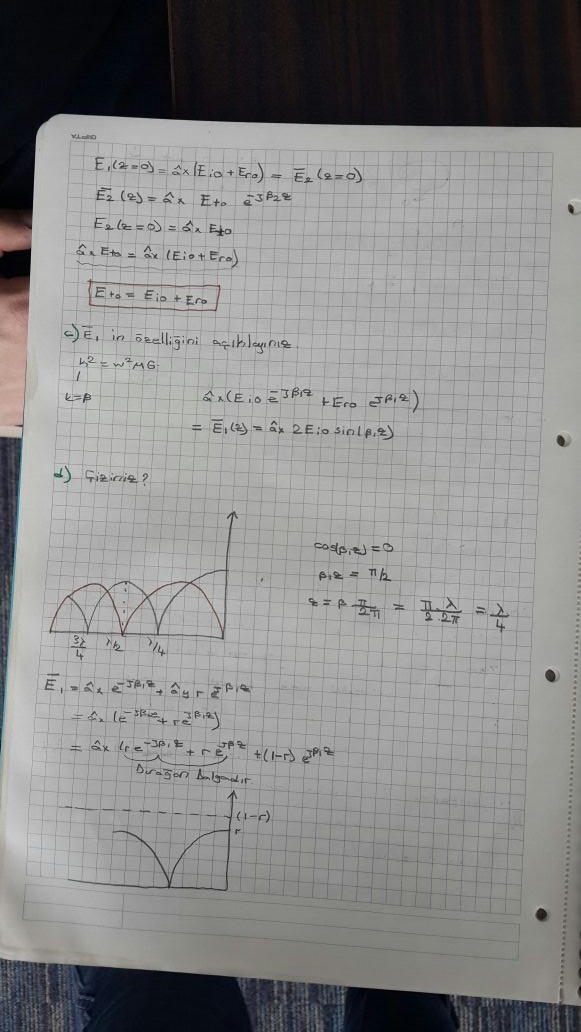 E₁(z=0) = âx(Eio + Ero) = E̅₂(z=0)
E̅₂(z) = âx Eto e^-Jβ₂z
E₂(z=0) = âx Eto
âx Eto = âx (Eio + Ero)
Eto = Eio + Ero
c) E̅₁ in özelliğini açıklayınız.
k² = w²με
k=β
âx(Eio e^-Jβ₁z + Ero e^Jβ₁z)
= E̅₁(z) = âx 2Eio sin(β₁z)
d) Çiziniz?
cos(β₁z) = 0
β₁z = π/2
z = β π/2π = π/2 . λ/2π = λ/4
3λ/4 λ/2 λ/4
E̅₁ = âx e^-Jβ₁z + ây r e^Jβ₁z
= âx (e^-Jβ₁z + r e^Jβ₁z)
= âx (r e^-Jβ₁z + r e^Jβz + (1-r) e^Jβ₁z
Durağan Dalgadır.
(1-r)
r